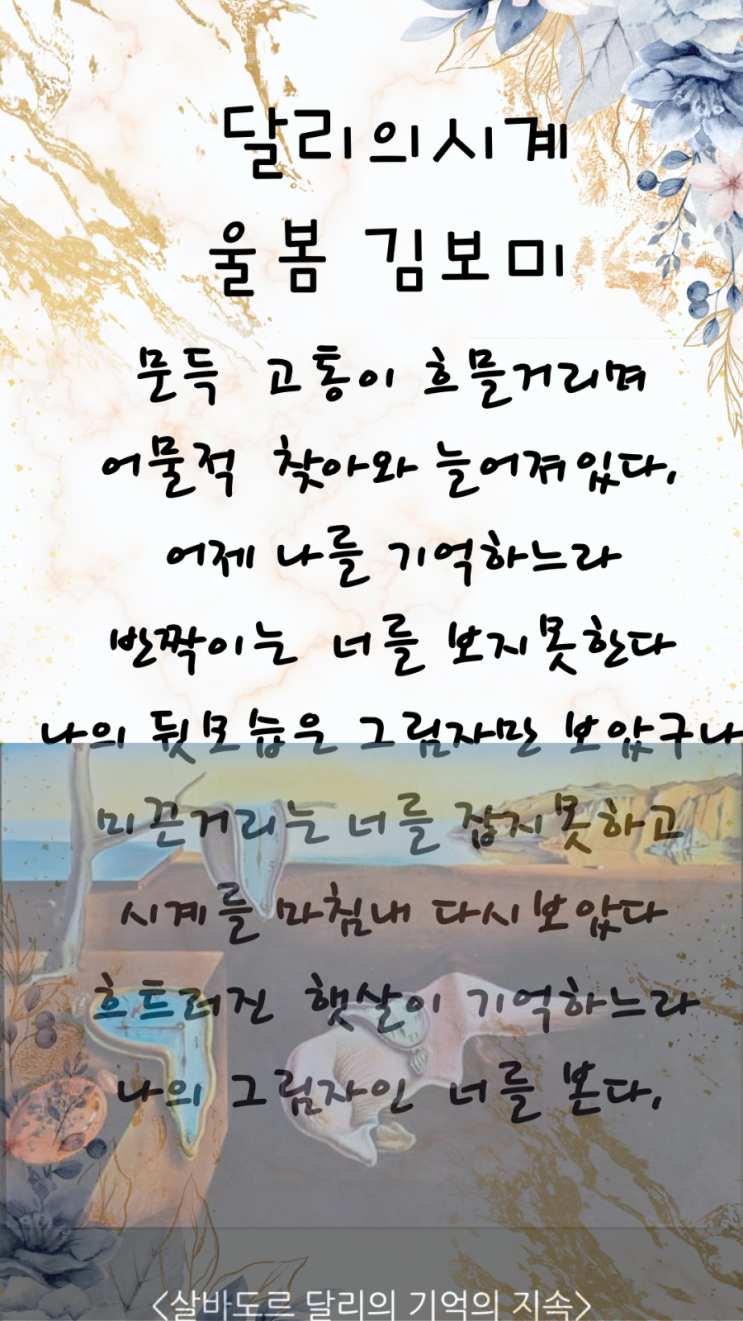 달리의시계
울봄 김보미
문득 고통이 흐믈거리며
어물적 찾아와 늘어져있다,
어제 나를 기억하느라
반짝이는 너를 보지못한다
나의 뒷모습은 그림자만 보았구나
미끈거리는 너를 잡지못하고
시계를 마침내 다시보았다
흐트러진 햇살이 기억하느라
나의 그림자인 너를 본다,
<살바도르 달리의 기억의 지속>